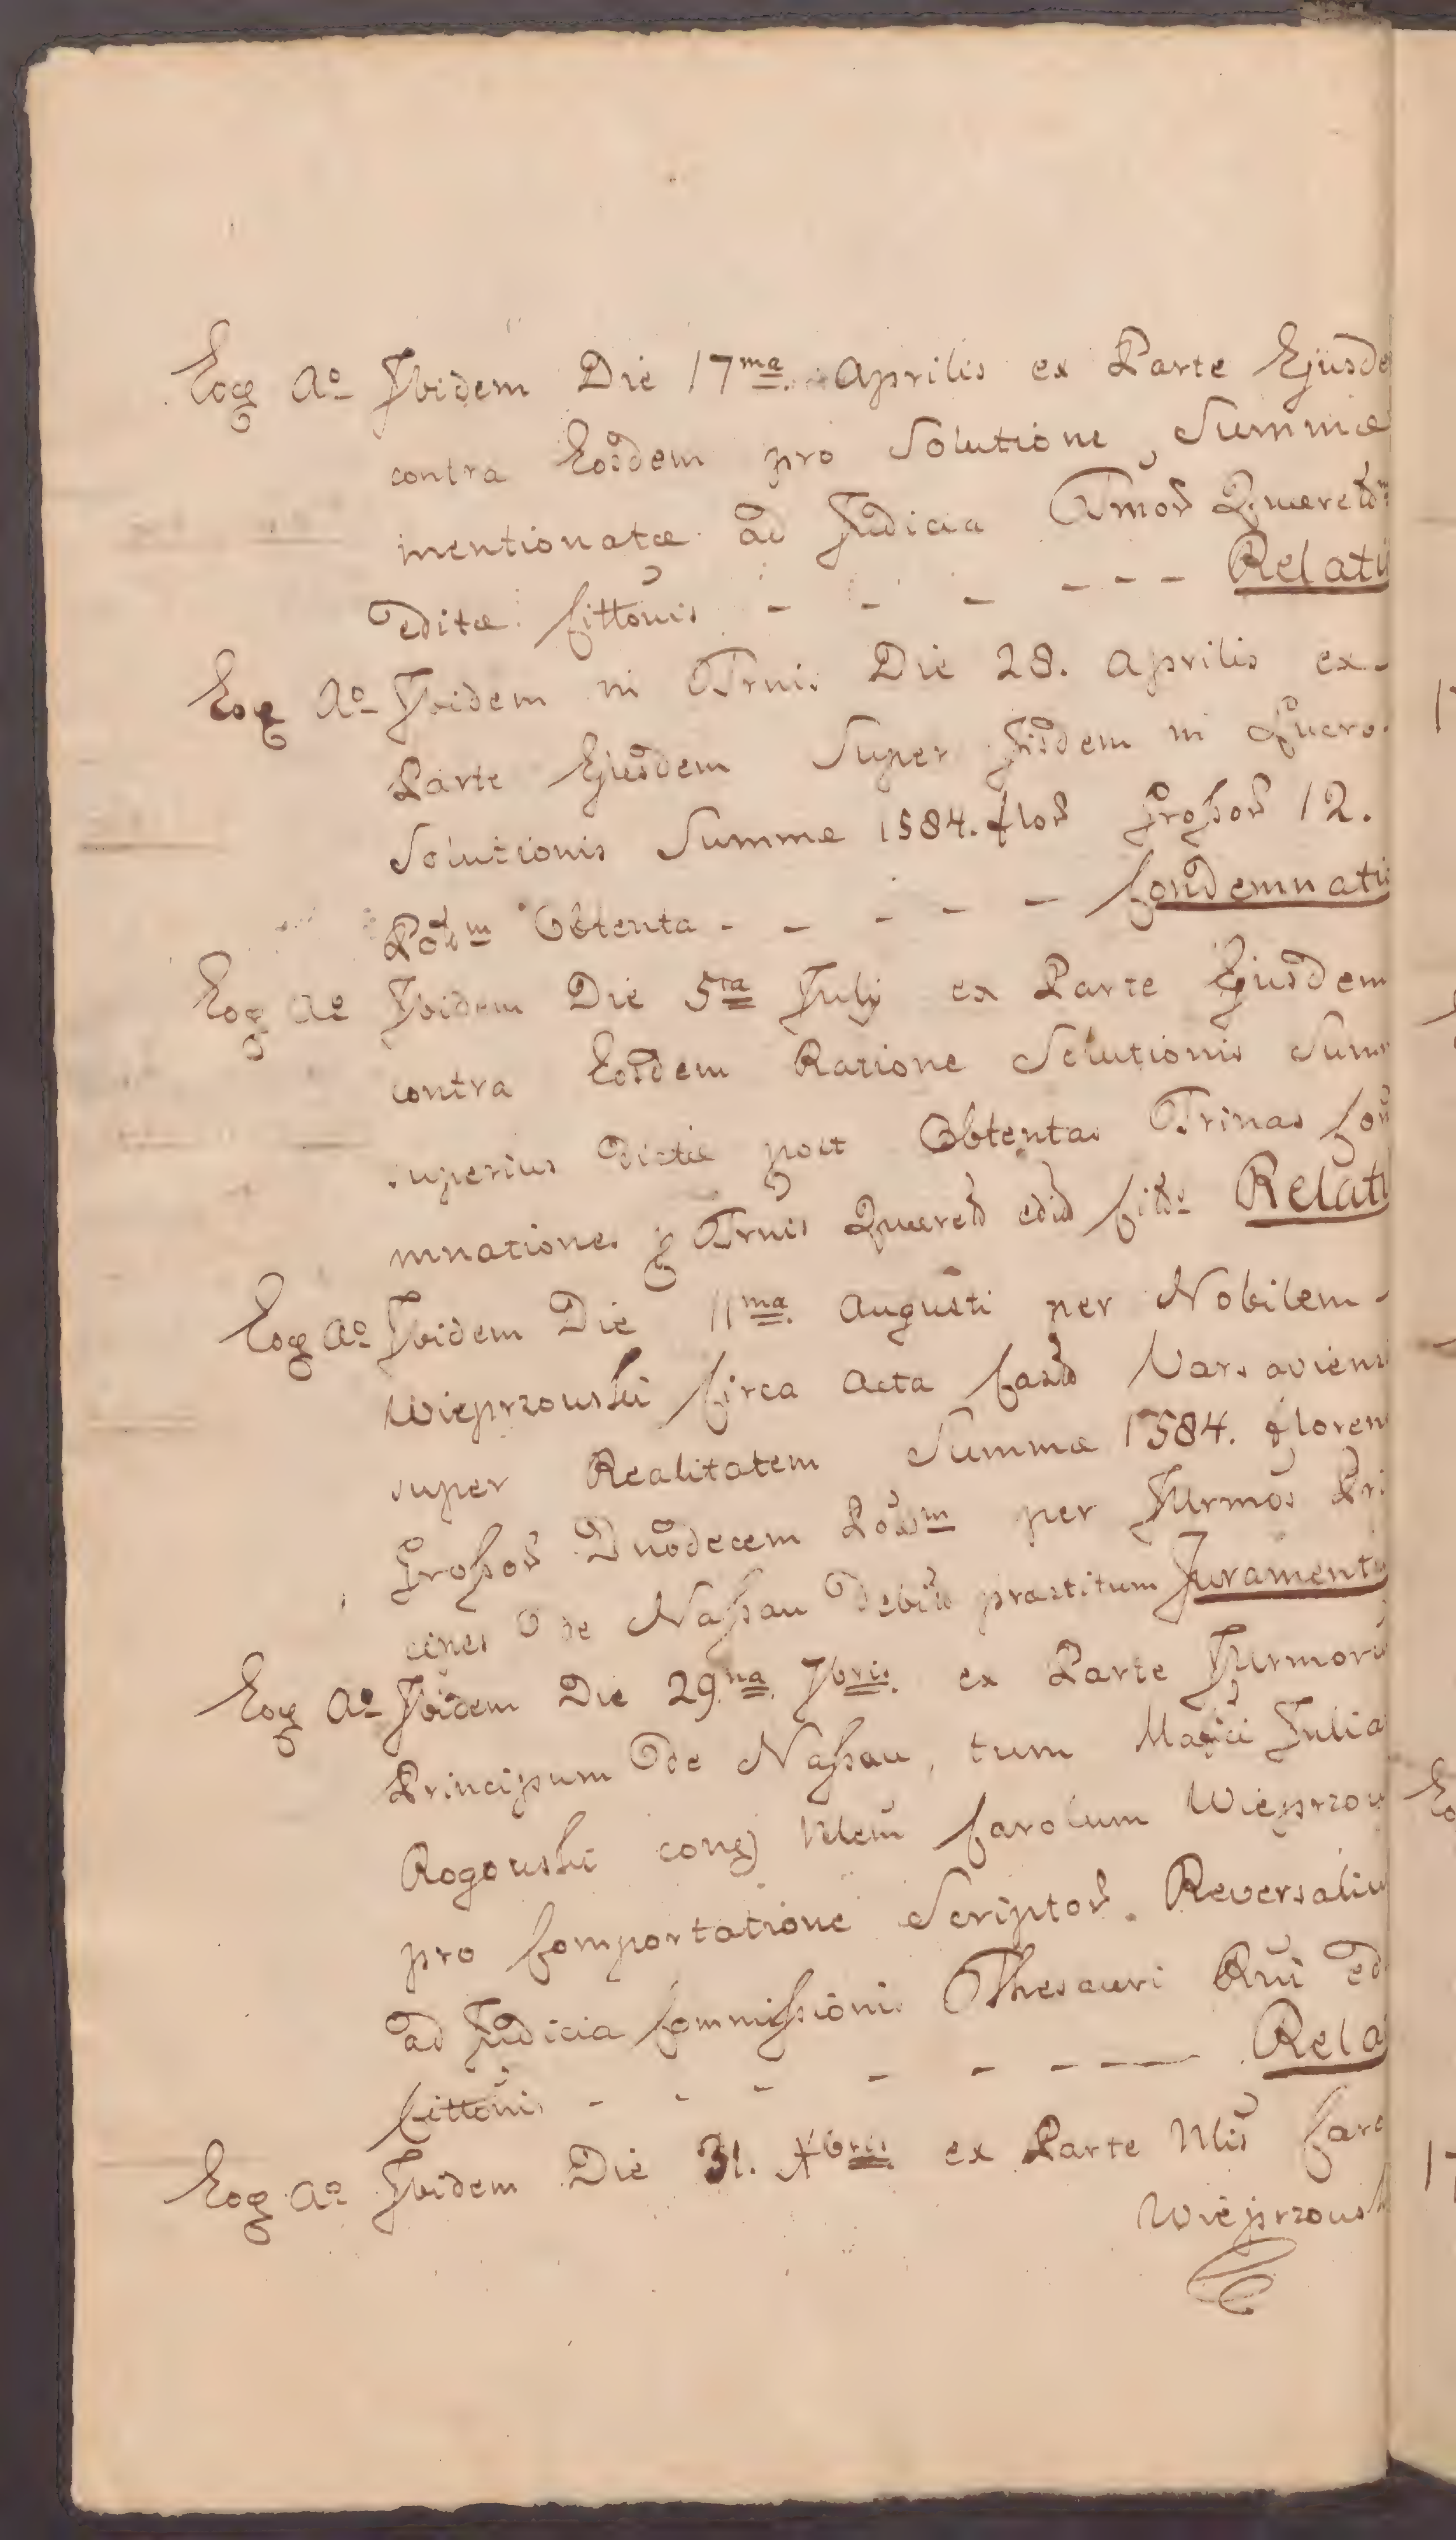 Eoq Ao Ibidem Die 17ma Aprilis ex Parte Ejusde
contra Eosdem pro Solutione Summæ
mentionatæ ad Judicia Tmor Quærel
editæ Cittõnis - - - - - - Relati
Eoq Ao Ibidem in Trni. Die 28. Aprilis ex-
Parte Ejusdem Super Iisdem in Quero.
Solutionis Summæ 1584. flor Grossor 12.
Polm Obtenta - - - - - Condemnatio
Eoq Ao Ibidem Die 5ta Julij ex Parte Ejusdem
contra Eosdem Ratione Solutionis Sum
superius dictæ post Obtentas Trinas Con
mnationes Trnis Quærel Relati
Eoq Ao Ibidem Die 11ma Augusti per Nobilem-
Wieprzouski Circa Acta Varsaviens
super Realitatem Summæ 1584. floren
Grossor Duodecem Polom per Jllrmos Pri
cipes de Nassau præstitum Juramentu
Eoq Ao Ibidem Die 29na 7bris. ex Parte Jllrmoru
Principum de Nassau, tum Mafici Julia
Rogouski conq Carolum Wieprzou
pro Comportatione Scriptor Reversaliu
ad Judicia Commissionis Thesauri Rni ed
Cittõnis - - - - - - Rela
Eoq Ao Ibidem Die 31. Xbris ex Parte Caro
Wieprzousk